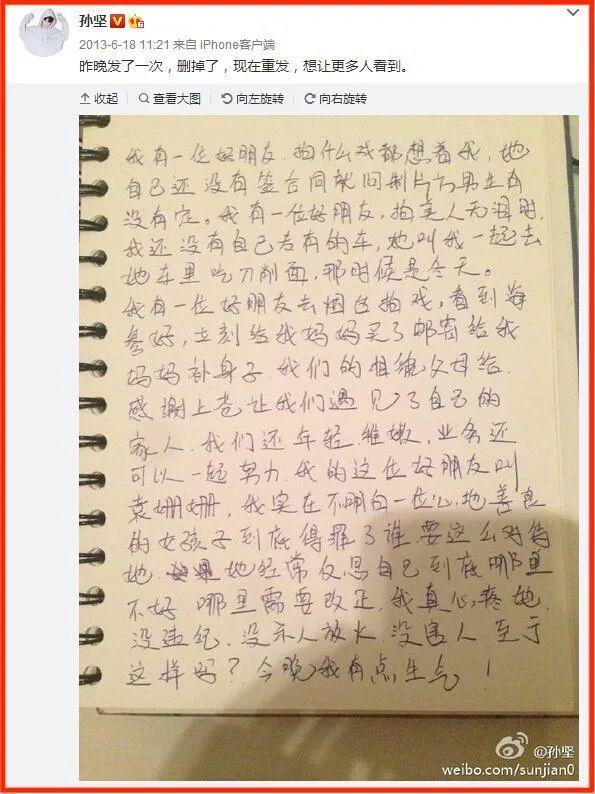 孙坚
2013-6-18 11:21 来自 iPhone客户端
昨晚发了一次，删掉了，现在重发，想让更多人看到。
收起 查看大图 向左旋转 向右旋转
我有一位好朋友.拍什么戏都想着我，她
自己还没有签合同就问制片方男生有
没有定。我有一位好朋友，拍美人无泪时.
我还没有自己专有的车，她叫我一起去
她车里吃刀削面，那时候是冬天。
我有一位好朋友去烟台拍戏，看到海
参好，立刻给我妈妈买了邮寄给我
妈妈补身子.我们的相貌父母给.
感谢上苍让我们遇见了自己的
家人.我们还年轻稚嫩，业务还
可以一起努力.我的这位好朋友叫
袁姗姗，我实在不明白一位心地善良
的女孩子到底得罪了谁.要这么对待
她.她经常反思自己到底哪里
不好 哪里需要改正.我真心疼她.
没违纪.没杀人放火.没害人.至于
这样吗？今晚我有点生气！
@孙坚
weibo.com/sunjian0